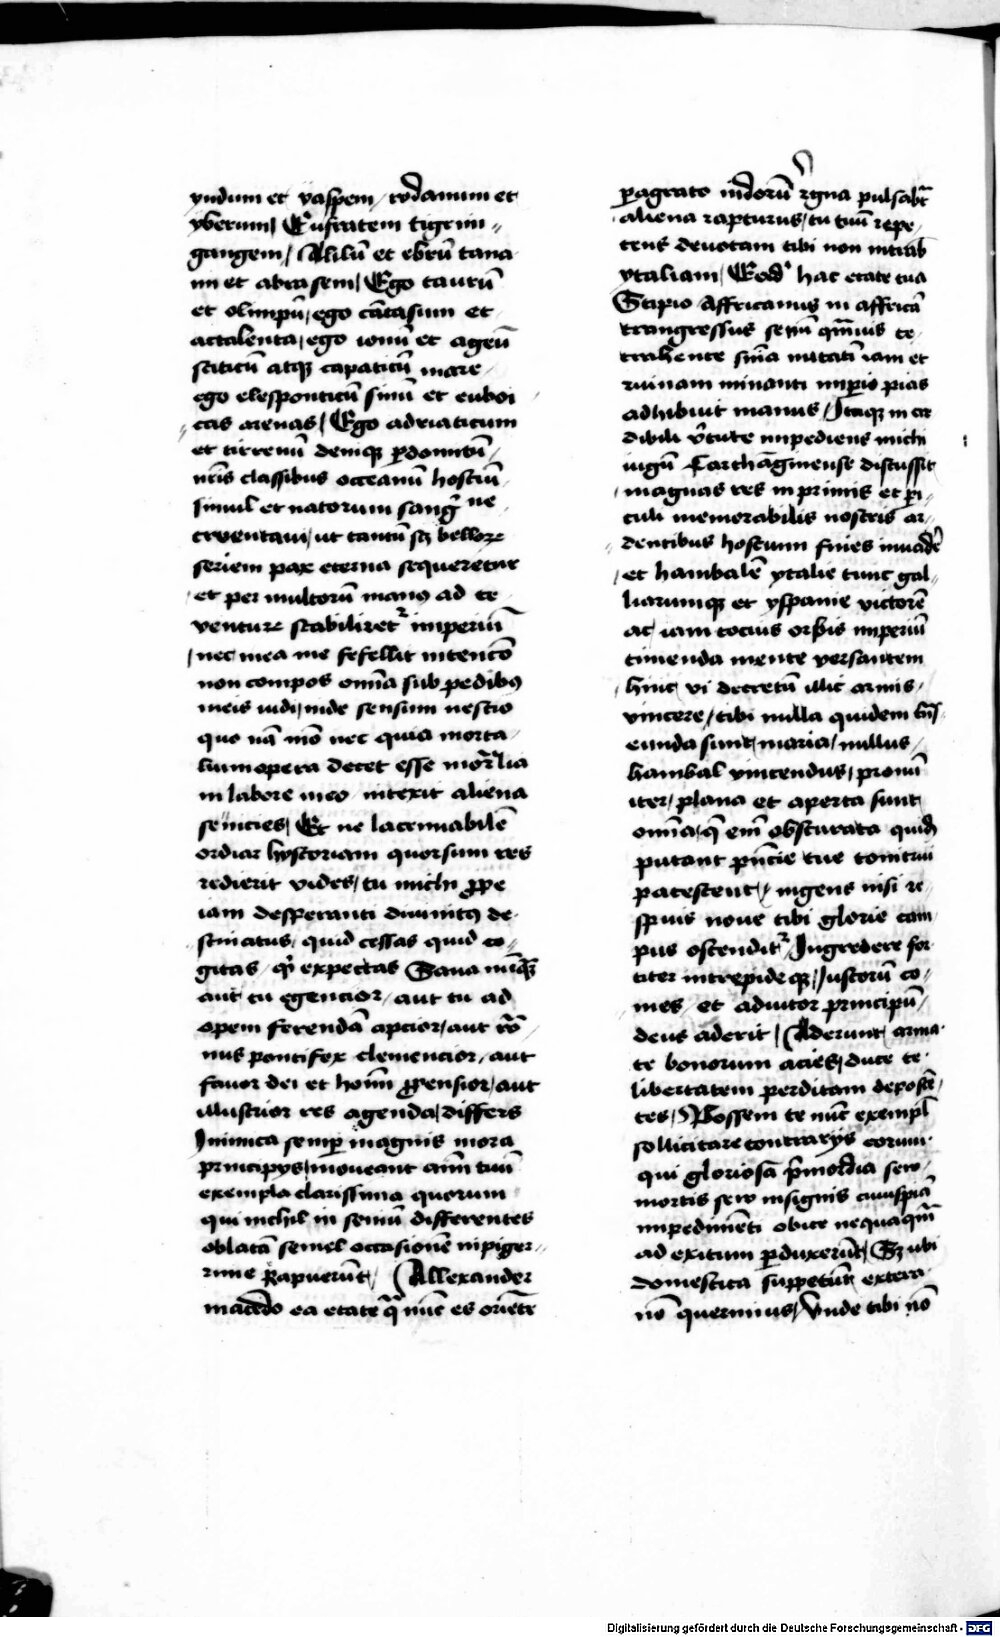 yndum et ydaspem / rodanum et
yberum / Eufratem tigrim
gangem / Nilū et ebrū tana
im et abraxem / Ego taurū
et olimpū / ego cācasum et
actalenta / ego ioniū et ageū
sciticū atqȝ capaticū mare /
ego elesponticū sinū et euboi
cas arenas / Ego adriaticum
et tirrenū deniqȝ ꝑdomitū /
nr̄is classibus occeanū hostiū
simul et natorum sanguine
cruentaui / ut tantū sȝ bellorꝝ
seriem pax eterna sequeretur
et per multorū manꝰ ad te
venturꝝ stabiliretᷣ imperiū
/ nec mea me fefellit intencō
non compos om̄ia sub pedibꝰ
meis uidi / inde sensim nescio
quo nā mō nec quia morta /
lium opera decet esse morͬlia
in labore meo intexit aliena
seīncies / Et ne lacrimabilē
ordiar hystoriam quorsum res
redierit vides / tu michi ꝓpe
iam desperanti diuinitꝰ de
stinatus / quid cessas quid co
gitas / qͥ expectas Sana nūqȝ
aut tu egencior / aut tu ad
opem ferendā apcior / aut rō /
nus pontifex clemencior / aut
fauor dei et hoīm ꝓpensior / aut
illustrior res agenda / differs
Inimica semꝑ magnis mora
principijs / moueant aīm tuū
exempla clarissima quorum
qui nichil in seniū differentes
oblatā semel occasionē inpiger
rime rapuerūt / Allexander
macedo ea etate qͣ nūc es oriētē
ꝑagrato indorū regna pulsabͣt
aliena rapturus / tu tuū repe /
tens deuotam tibi non intrabͦ
ytaliam / Eodͤ hac etate tua
Scipio Affricanus in affricā
transgressus seniū qͣmuis re
trahente sn̄ia nutati iam et
ruinam minanti imꝑio pias
adhibuit manus / Itaqȝ in cre
dibili v̓tute impediens michi
iugū Carthāginense discussit
/ magnas res in primis et ꝑi
culi memorabilis nostris ar
dentibus hostium fines inuadē
/ et hanibalē ytalie tunc gal
liarumqȝ et yspanie victorē
ac iam tocius orbis imperiū
timenda mente versantem
/ hinc vi decretū illic armis /
vincere / tibi nulla quidem trās
eunda sunt maria / nullus
hanibal vincendus / pronū
iter / plana et aperta sunt
om̄ia / qͣ em̄ obscurata quidā
putant pn̄cie tue tonitrui
patescent / ingens nisi re
spuis noue tibi glorie cam
pus ostenditᷣ Ingredere for
titer intrepide qȝ / Iustorū co /
mes et adiutor principū /
deus aderit / Aderunt arma
te bonorum acies / duce te
libertatem perditam deposcē
tes / Possem te nūc exempl
sollicitare contrarijs eorum
qui gloriosā pͥmordia seu
mortis seu insignis cuiuspiā
impedimēti obice nequaqͣm
ad exitum ꝑduxerūt / Sȝ ubi
domestica suppetūt extera
nō querimus / Unde tibi nō
Digitalisierung gefördert durch die Deutsche Forschungsgemeinschaft - DFG